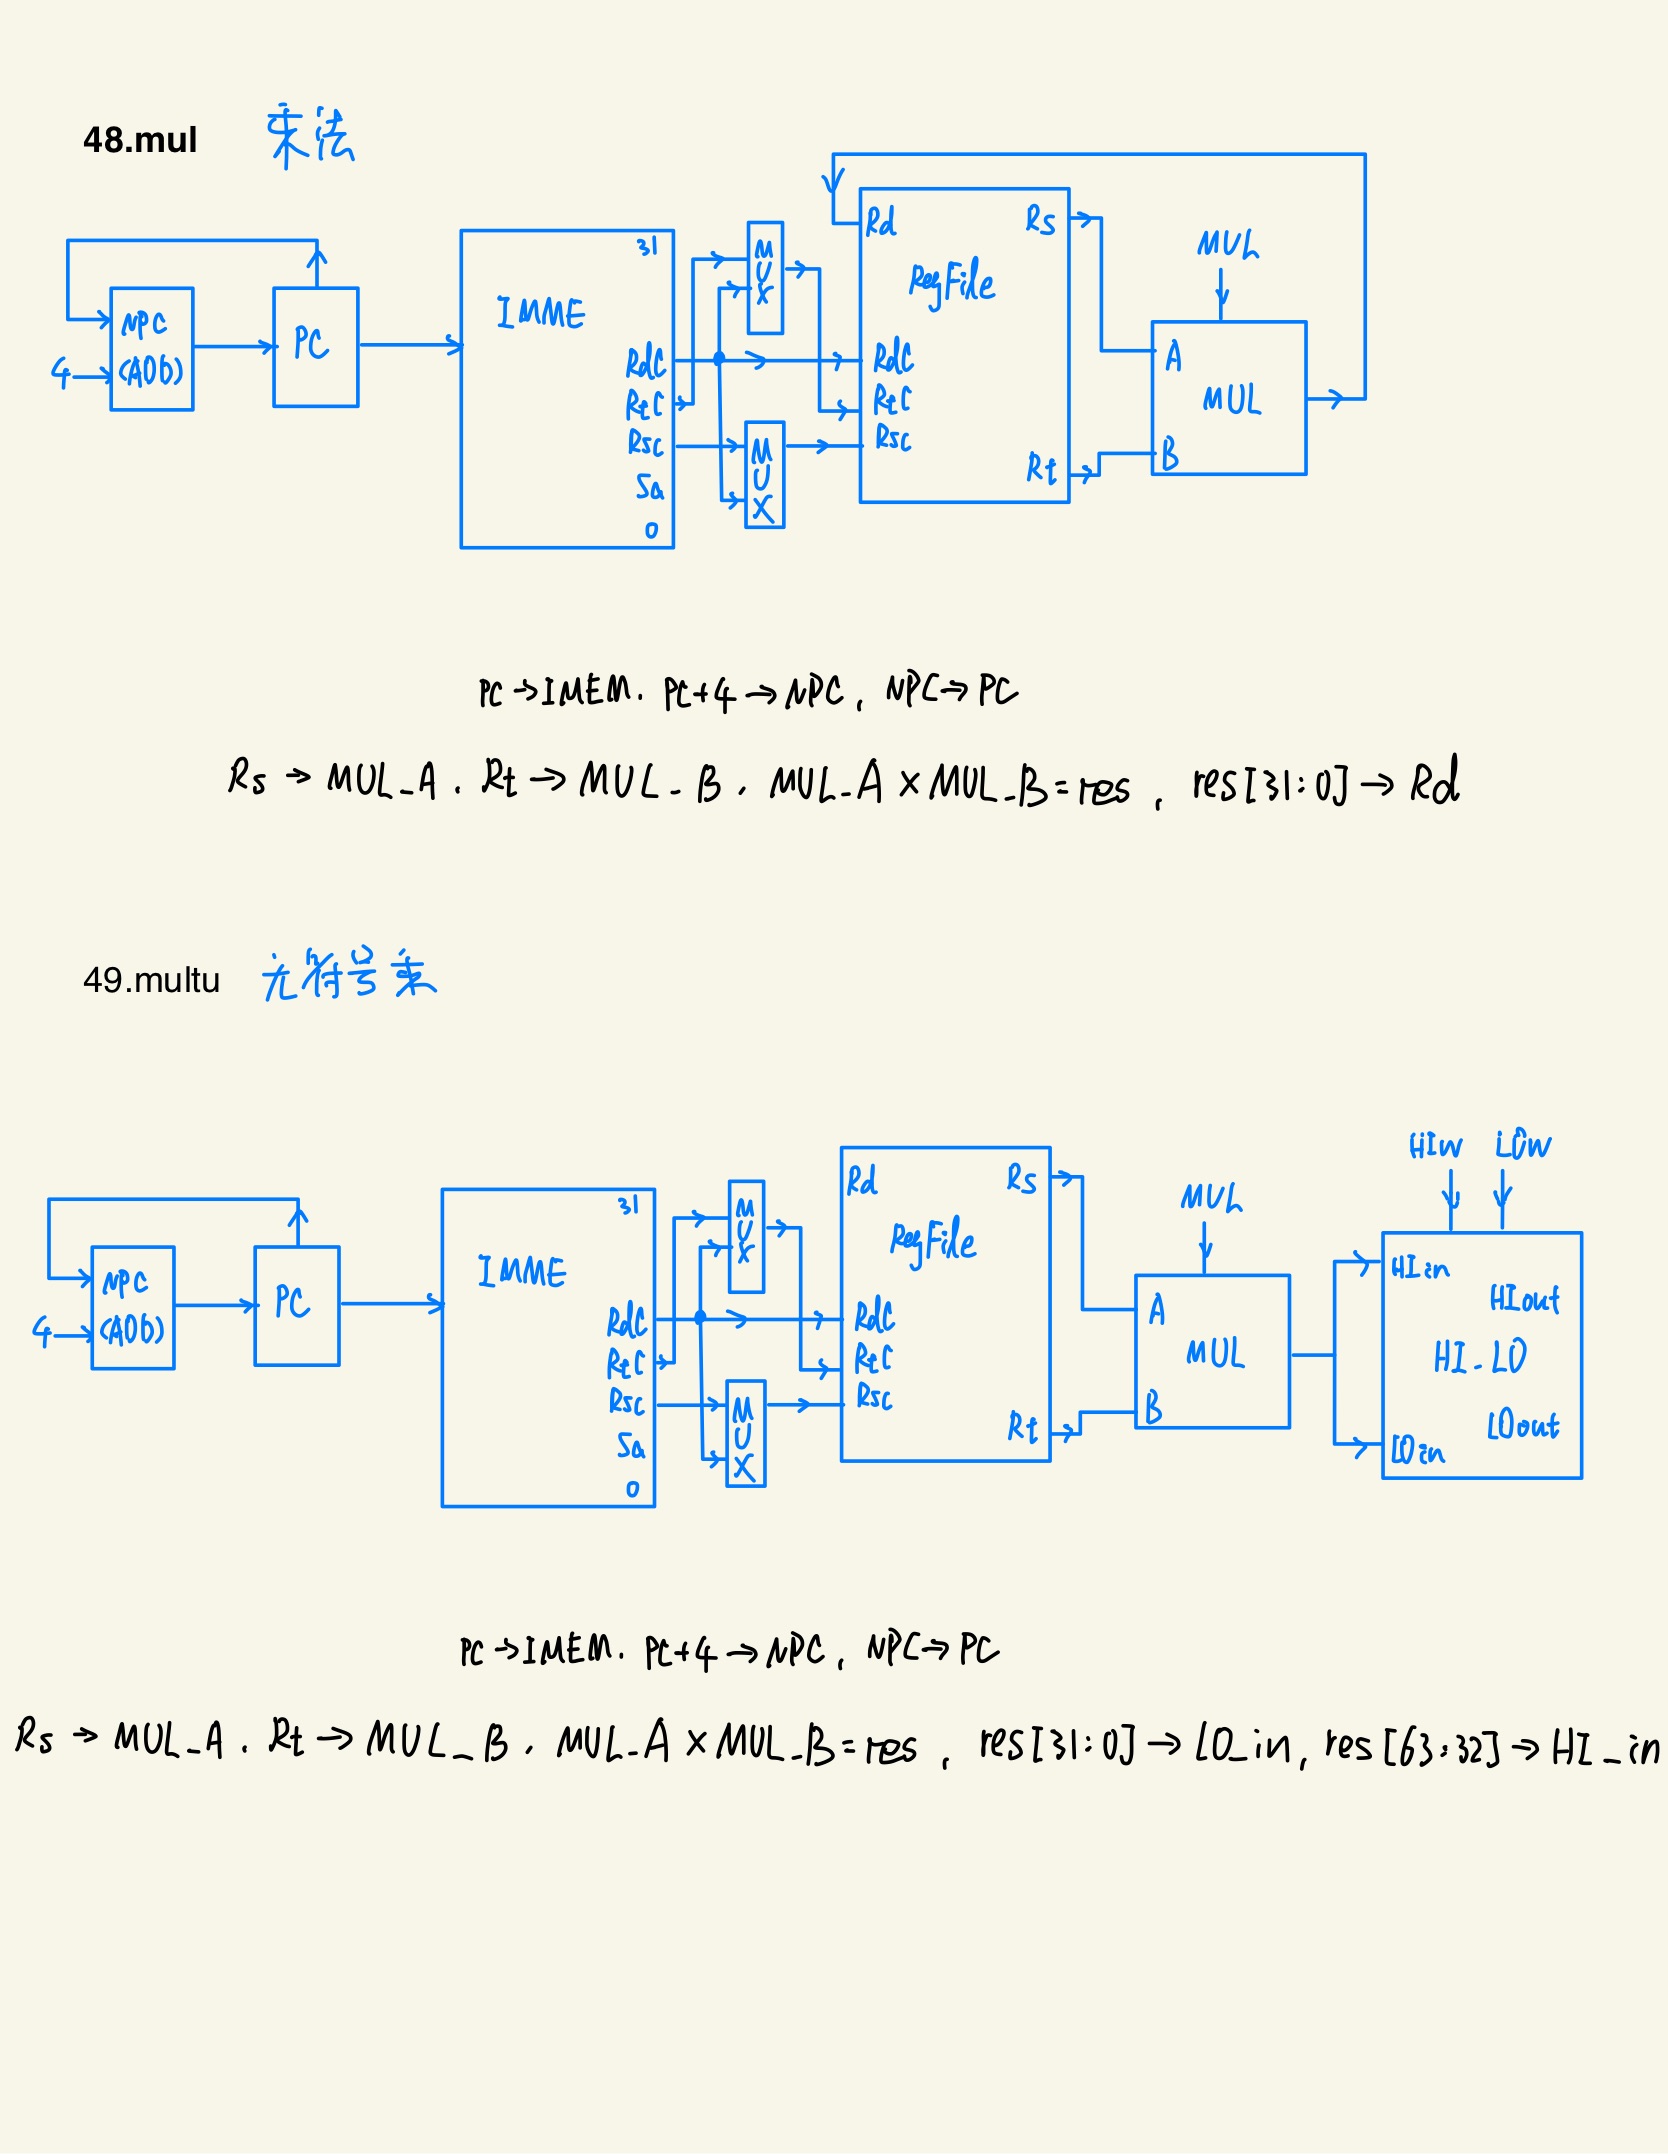 48.mul 乘法
31
IMME
RdC
RtC
Rsc
Sa
0
NPC
(ADD)
4
PC
MUX
MUX
Rd
Rs
RegFile
RdC
RtC
Rsc
Rt
MUL
A
MUL
B
PC→IMEM. PC+4→NPC, NPC→PC
Rs → MUL_A. Rt → MUL_B, MUL_A × MUL_B = res, res[31:0] → Rd
49.multu 无符号乘
31
IMME
RdC
RtC
Rsc
Sa
0
NPC
(ADD)
4
PC
MUX
MUX
Rd
Rs
RegFile
RdC
RtC
Rsc
Rt
MUL
A
MUL
B
HIw LOw
HIin
HIout
HI_LO
LOout
LOin
PC→IMEM. PC+4→NPC, NPC→PC
Rs → MUL_A. Rt → MUL_B, MUL_A × MUL_B = res, res[31:0] → LO_in, res[63:32] → HI_in